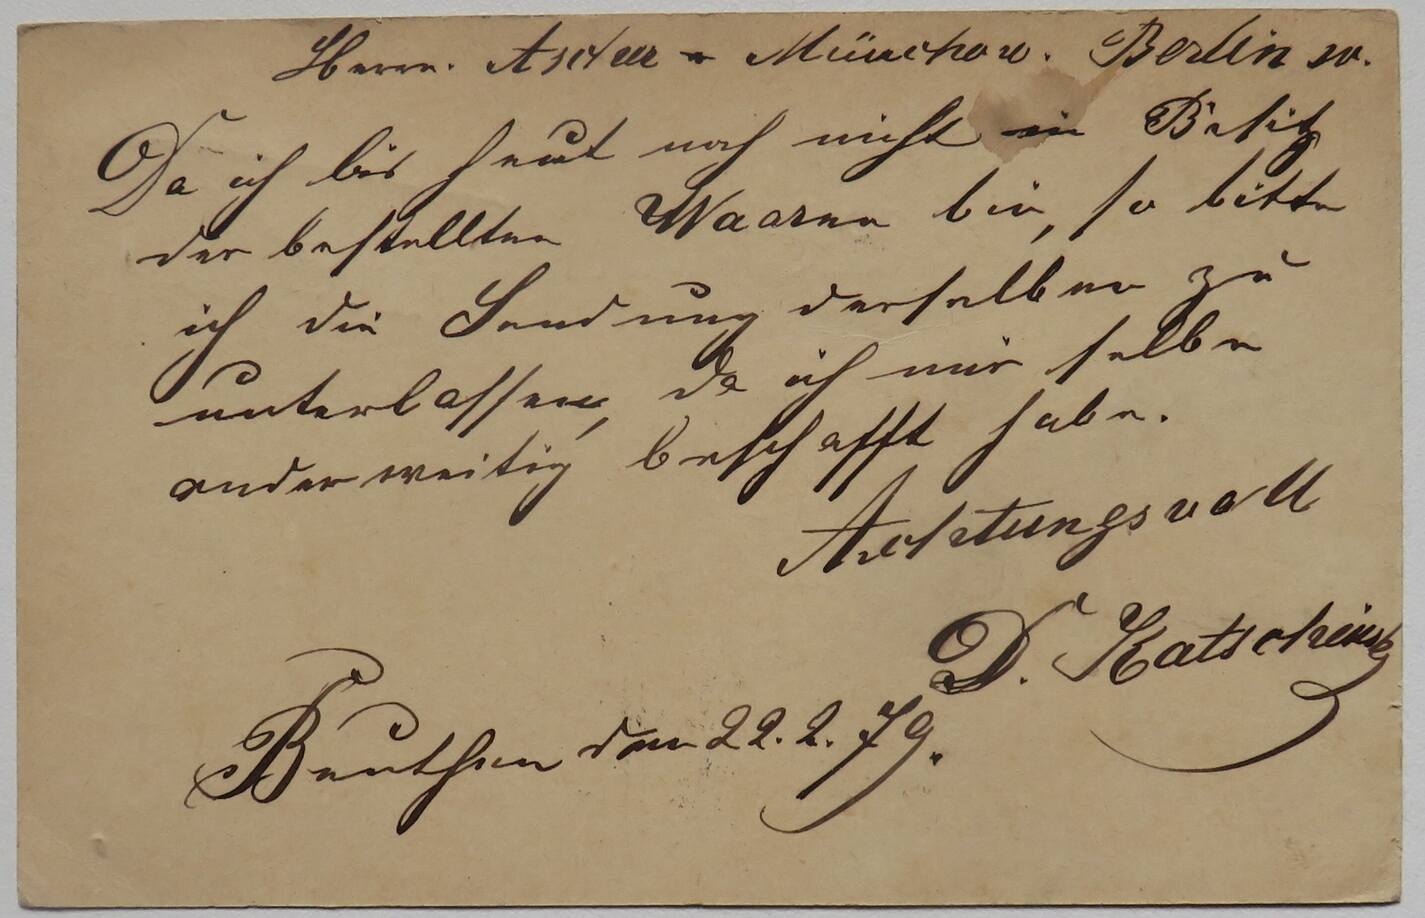 Herrn. Ascher & Münchow. Berlin W.
Da ich bis heut noch nicht in Besitz
der bestellten Waaren bin, so bitte
ich die Sendung derselben zu
unterlassen, da ich mir selbe
anderweitig beschafft habe.
Achtungsvoll
D. Katschinsky
Beuthen den 22.2.79.